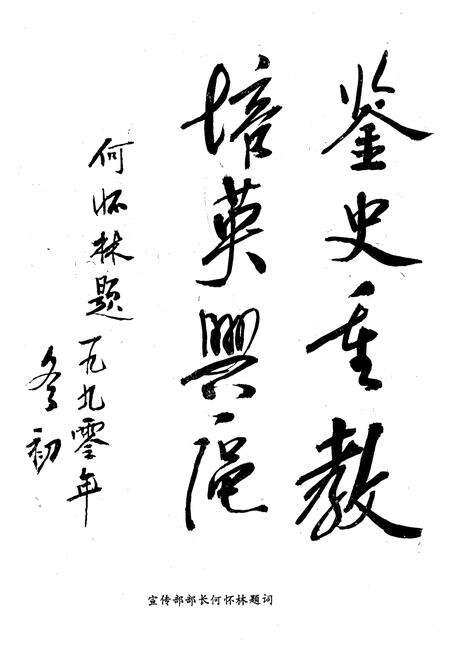 鉴史重教
培英興扈
何怀林题 一九九零年
冬初
宣传部部长何怀林题词